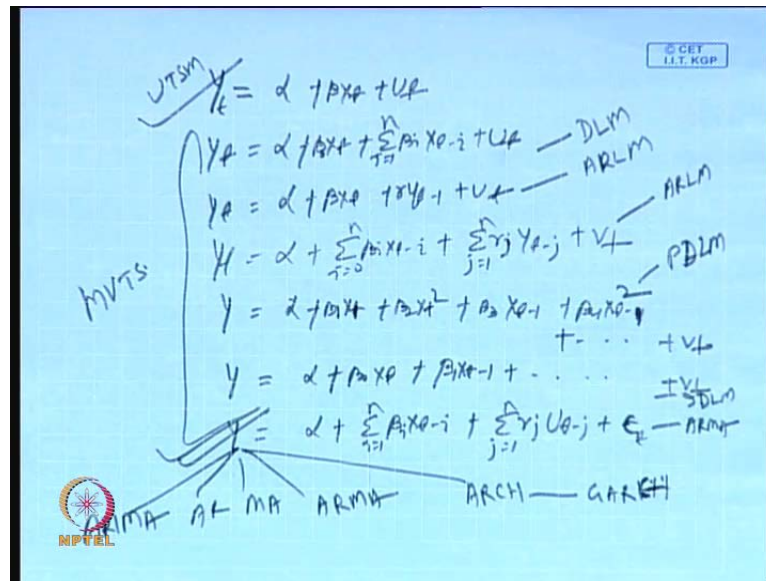 © CET
I.I.T. KGP
UTSM
Y_t = α + βX_t + U_t
Y_t = α + βX_t + Σ_{i=1}^{n} β_i X_{t-i} + U_t — DLM
Y_t = α + βX_t + γY_{t-1} + U_t — ARLM
Y_t = α + Σ_{i=0}^{n} β_i X_{t-i} + Σ_{j=1}^{n} γ_j Y_{t-j} + V_t — ARLM
MVTS
Y = α + β_1 X_t + β_2 X_t^2 + β_3 X_{t-1} + β_4 X_{t-1}^2 — PDLM
+ - . . . + V_t
Y = α + β_0 X_t + β_1 X_{t-1} + . . . .
+ V_t
SDLM
Y = α + Σ_{i=1}^{n} β_i X_{t-i} + Σ_{j=1}^{n} γ_j U_{t-j} + ε_t — ARMA
ARIMA AR MA ARMA ARCH — GARCH
NPTEL